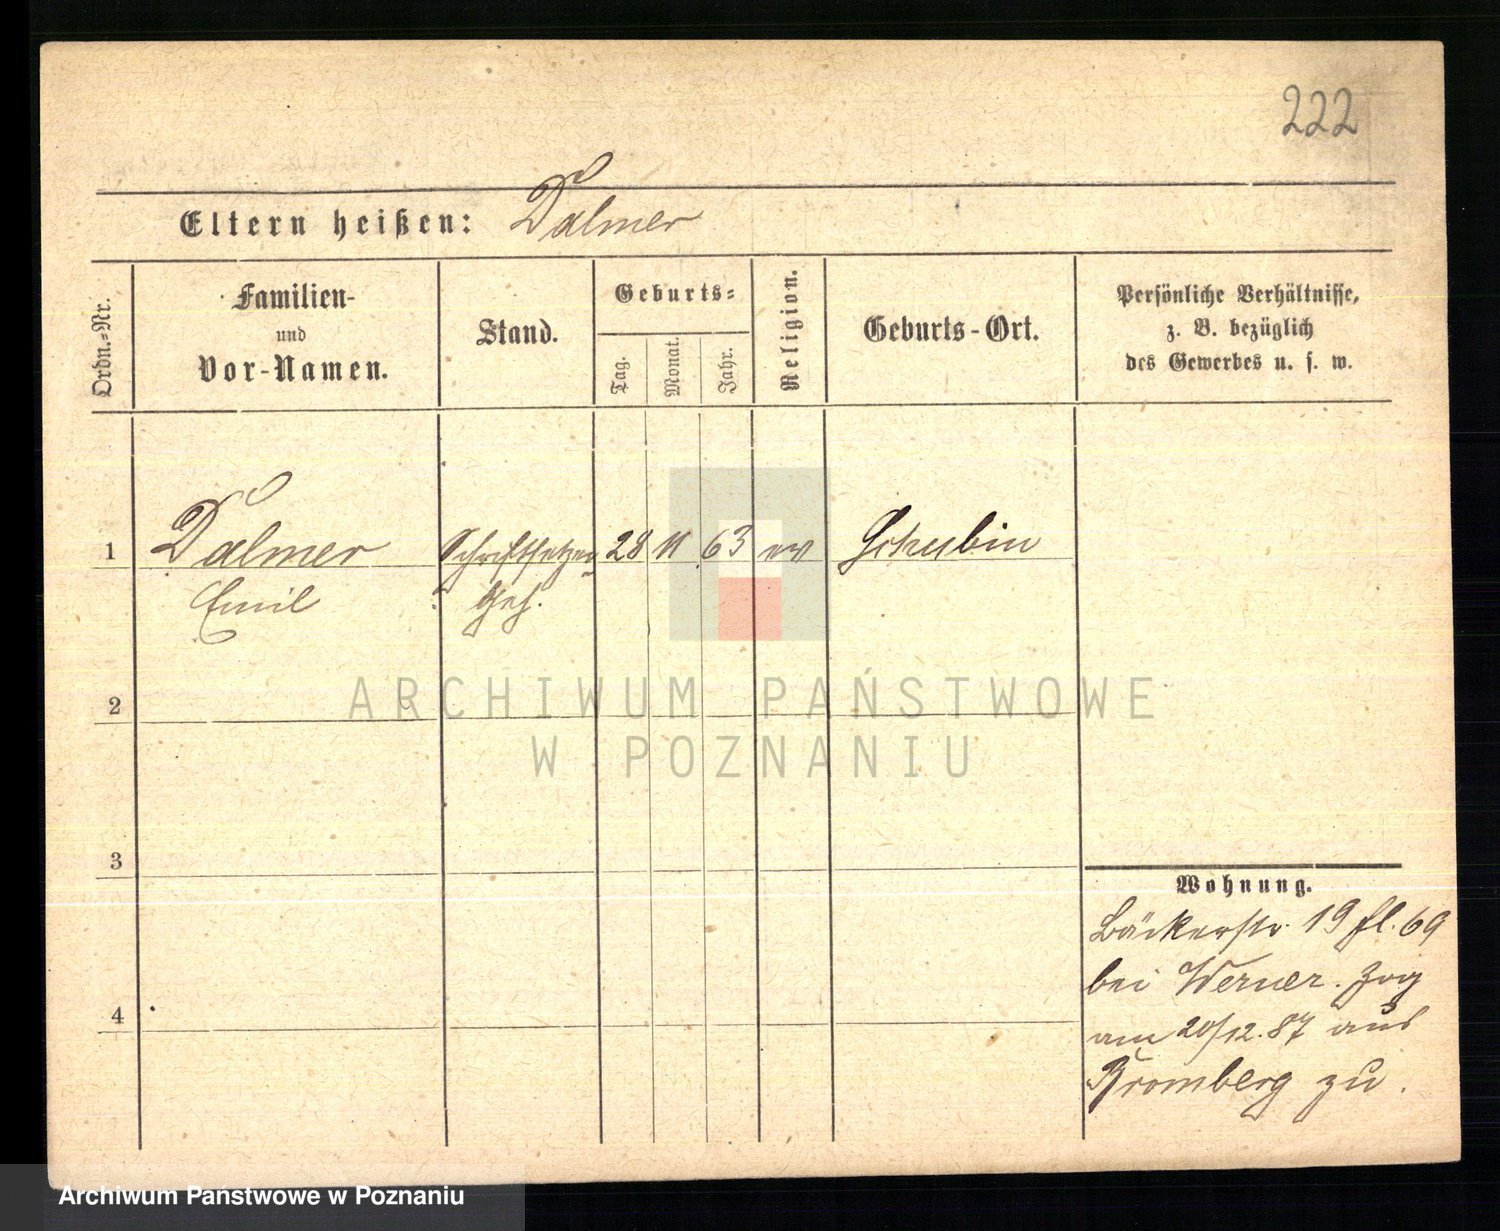 222
Eltern heißen: Dalmer
Ordn.-Nr.
Familien-
und
Vor-Namen.
Stand.
Geburts-
Tag.
Monat.
Jahr.
Religion.
Geburts-Ort.
Persönliche Verhältnisse,
z. B. bezüglich
des Gewerbes u. s. w.
1 Dalmer Schriftsetzer 28 11 63 ev Schubin
Emil Geh.
2
3
4
Wohnung.
Bäckerstr. 19 fl. 69
bei Werner. Zog
am 20/12.87 aus
Bromberg zu.
ARCHIWUM PAŃSTWOWE
W POZNANIU
Archiwum Państwowe w Poznaniu